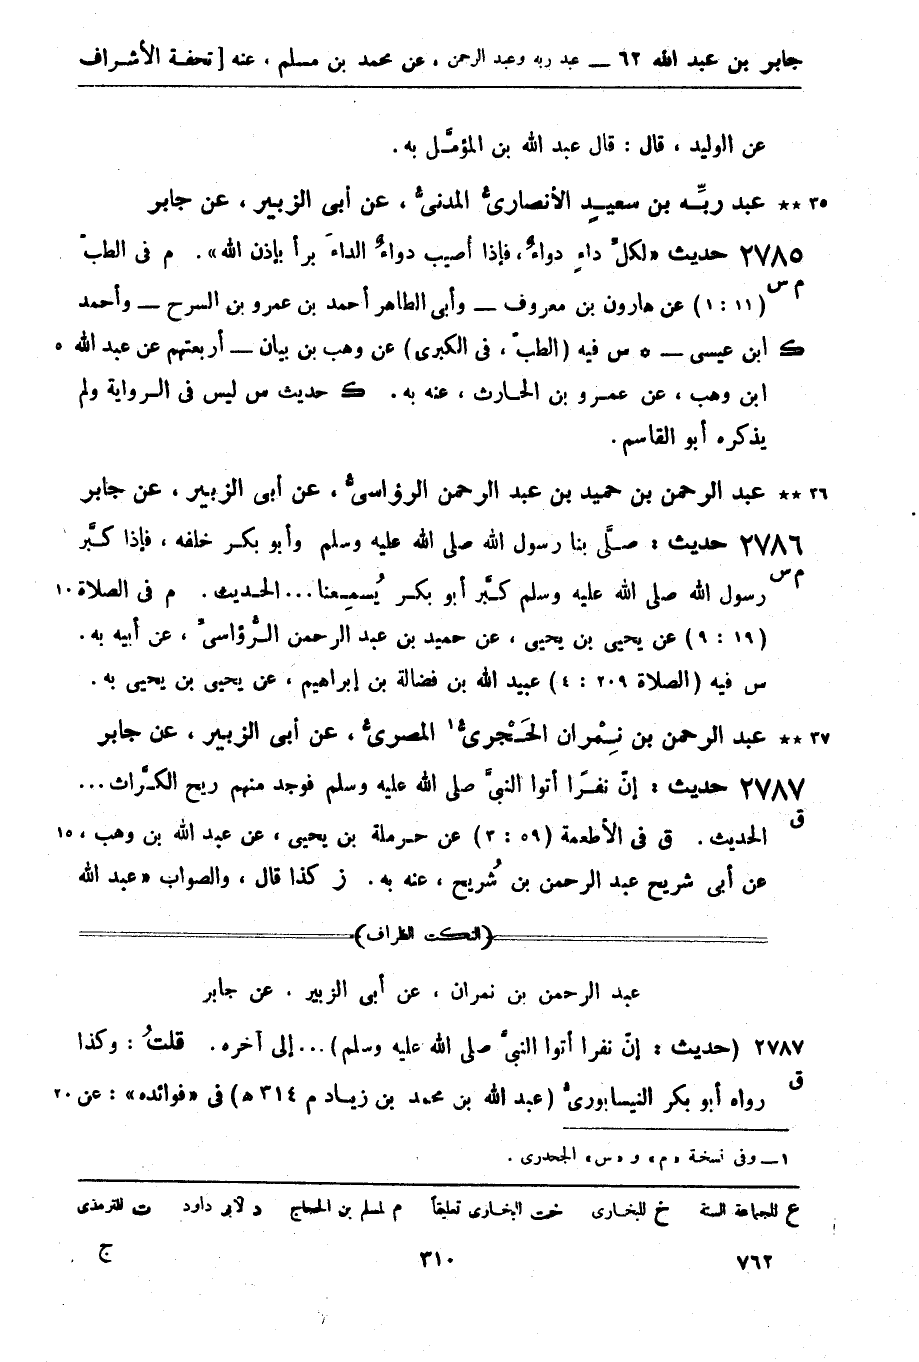 جابر بن عبد الله ٦٢ — عبد ربه وعبد الرحمن ، عن محمد بن مسلم ، عنه [ تحفة الأشراف
عن الوليد ، قال : قال عبد الله بن المؤمَّل به .
٣٥ ** عبد ربِّه بن سعيدٍ الأنصارىُّ المدنىُّ ، عن أبى الزبير ، عن جابر
٢٧٨٥ حديث «لكلّ داءٍ دواءٌ ، فإذا أصيب دواءُ الداءَ برأ بإذن الله» . م فى الطبّ
م س
(١١ : ١) عن هارون بن معروف — وأبى الطاهر أحمد بن عمرو بن السرح — وأحمد
ك ابن عيسى — ه س فيه (الطبّ ، فى الكبرى) عن وهب بن بيان — أربعتهم عن عبد الله ٥
ابن وهب ، عن عمرو بن الحارث ، عنه به . ك حديث س ليس فى الرواية ولم
يذكره أبو القاسم .
٣٦ ** عبد الرحمن بن حميد بن عبد الرحمن الرؤاسىُّ ، عن أبى الزبير ، عن جابر
٢٧٨٦ حديث : صلَّى بنا رسول الله صلى الله عليه وسلم وأبو بكر خلفه ، فإذا كبَّر
م س
رسول الله صلى الله عليه وسلم كبَّر أبو بكر يُسمِعنا ... الحديث . م فى الصلاة ١٠
(١٩ : ٩) عن يحيى بن يحيى ، عن حميد بن عبد الرحمن الرُّؤاسىّ ، عن أبيه به .
س فيه (الصلاة ٢٠٩ : ٤) عبيد الله بن فضالة بن إبراهيم ، عن يحيى بن يحيى به .
٣٧ ** عبد الرحمن بن نِمْران الحَجْرىُّ١ المصرىُّ ، عن أبى الزبير ، عن جابر
٢٧٨٧ حديث : إنّ نفرًا أتوا النبىَّ صلى الله عليه وسلم فوجد منهم ريح الكرَّاث ...
ق
الحديث . ق فى الأطعمة (٥٩ : ٣) عن حرملة بن يحيى ، عن عبد الله بن وهب ، ١٥
عن أبى شريح عبد الرحمن بن شُريح ، عنه به . ز كذا قال ، والصواب «عبد الله
(النكت الظراف)
عبد الرحمن بن نمران ، عن أبى الزبير . عن جابر
٢٧٨٧ (حديث : إنّ نفرا أتوا النبىَّ صلى الله عليه وسلم) ... إلى آخره . قلتُ : وكذا
ق
رواه أبو بكر النيسابورىُّ (عبد الله بن محمد بن زياد م ٣١٤ ه) فى «فوائده» : عن ٢٠
١ — وفى نسخة «م» و «س» الجحدرى .
ع للجماعة الستة خ للبخارى خت البخارى تعليقاً م لمسلم بن الحجاج د لأبى داود ت للترمذى
٧٦٢ ٣١٠ ج